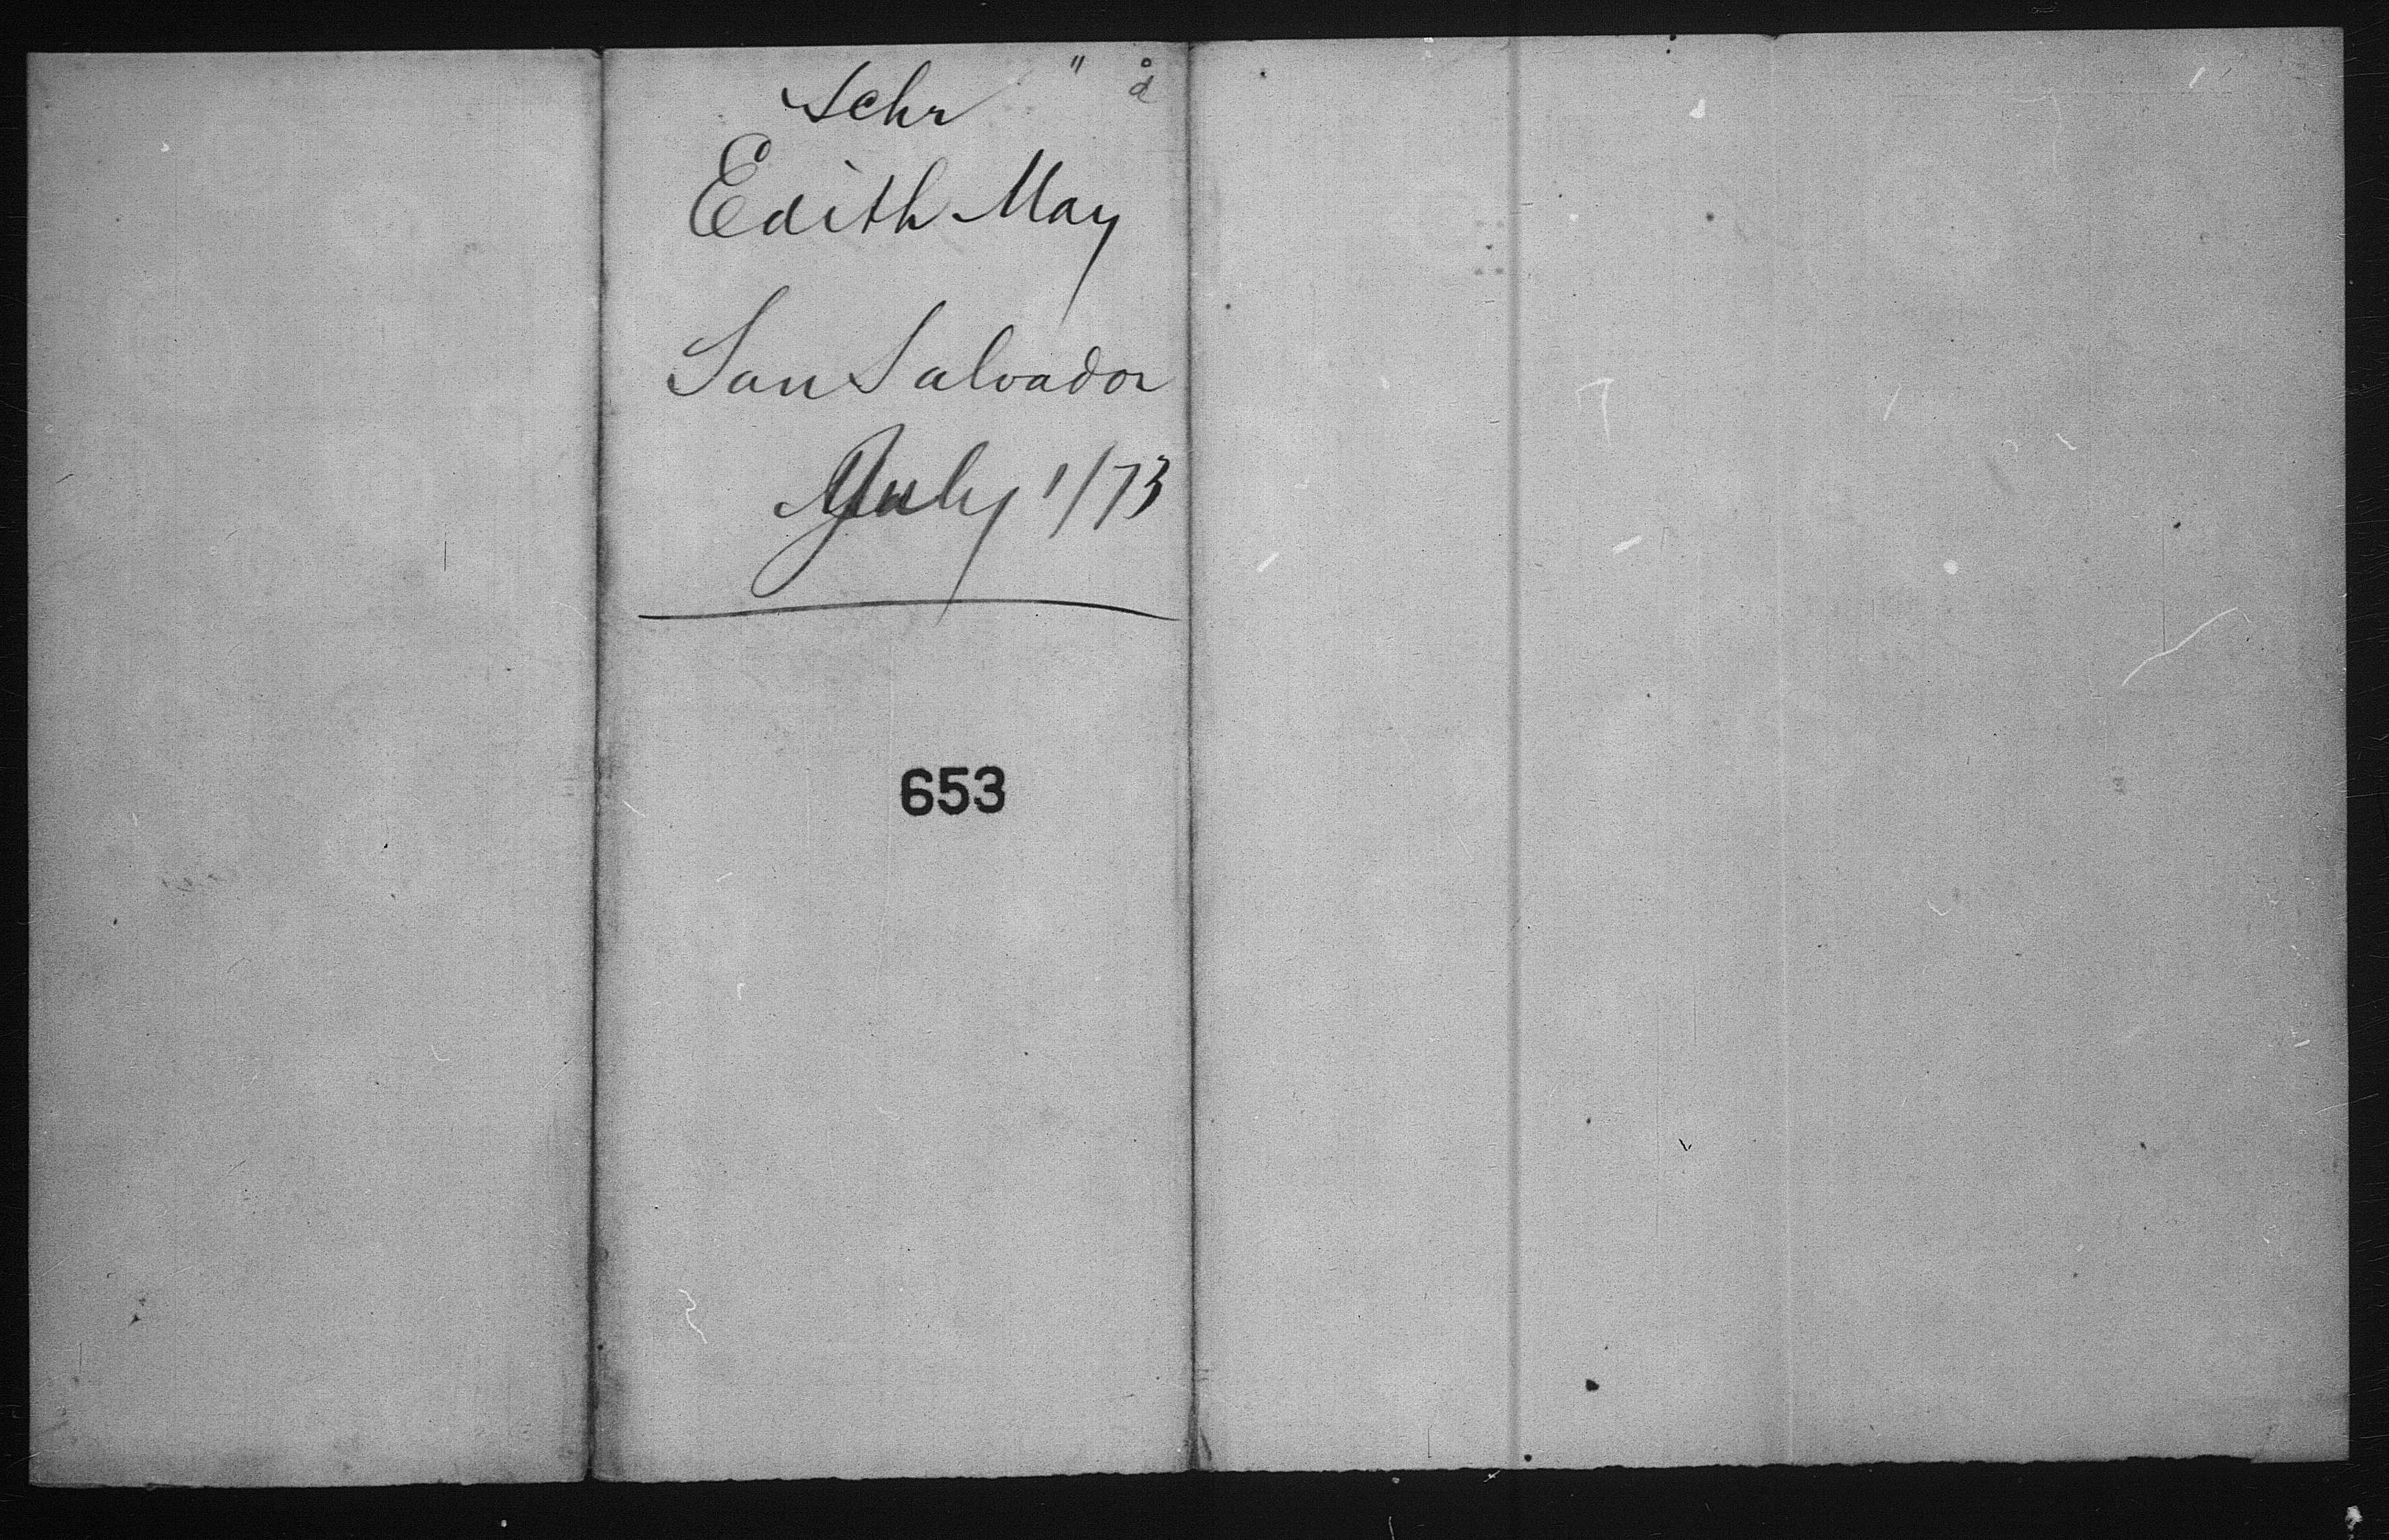 Schr
Edith May
San Salvador
July 1/73
653